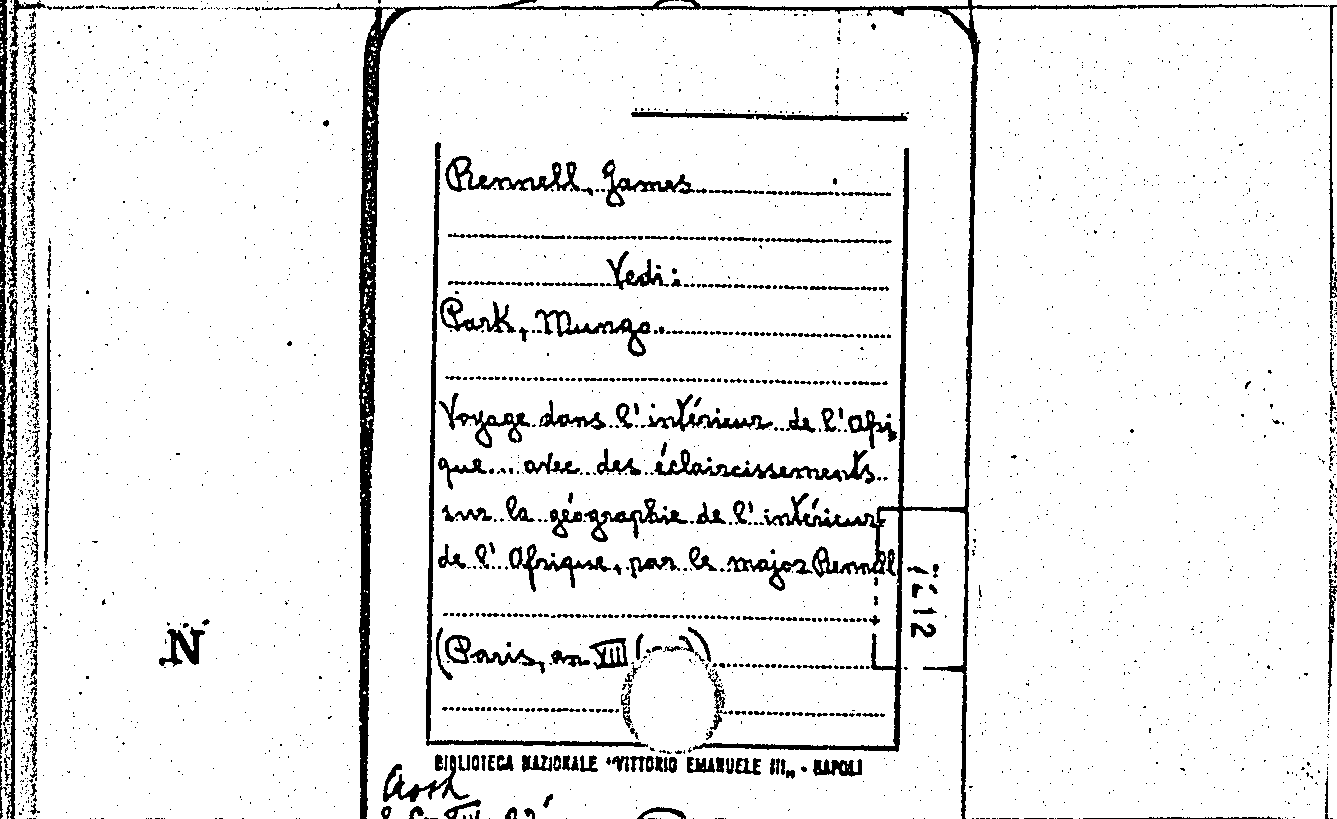 Rennell, James
Vedi:
Park, Mungo.
Voyage dans l'intérieur de l'Afri,
que... avec des éclaircissements
sur la géographie de l'intérieur
de l'Afrique, par le major Rennell
(Paris, an VIII (
BIBLIOTECA NAZIONALE "VITTORIO EMANUELE III„ - NAPOLI
N